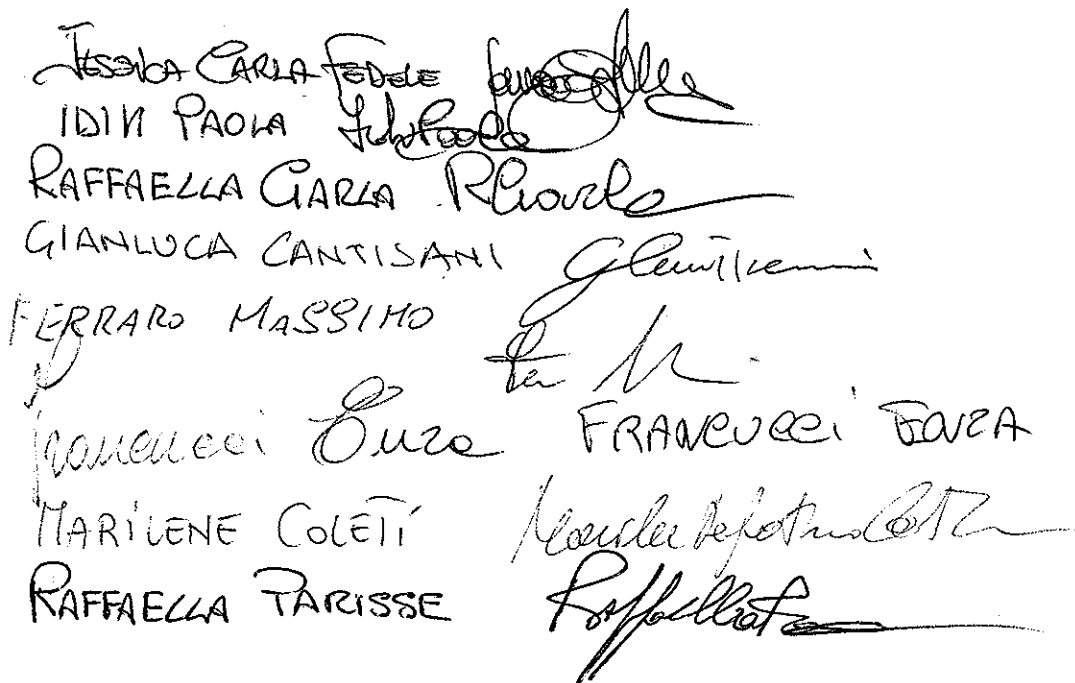 JESSICA CARLA FEDELE
IDINI PAOLA
RAFFAELLA CIARLA RCiarla
GIANLUCA CANTISANI
FERRARO MASSIMO
Francucci Enza FRANCUCCI ENZA
MARILENE COLETI
RAFFAELLA PARISSE